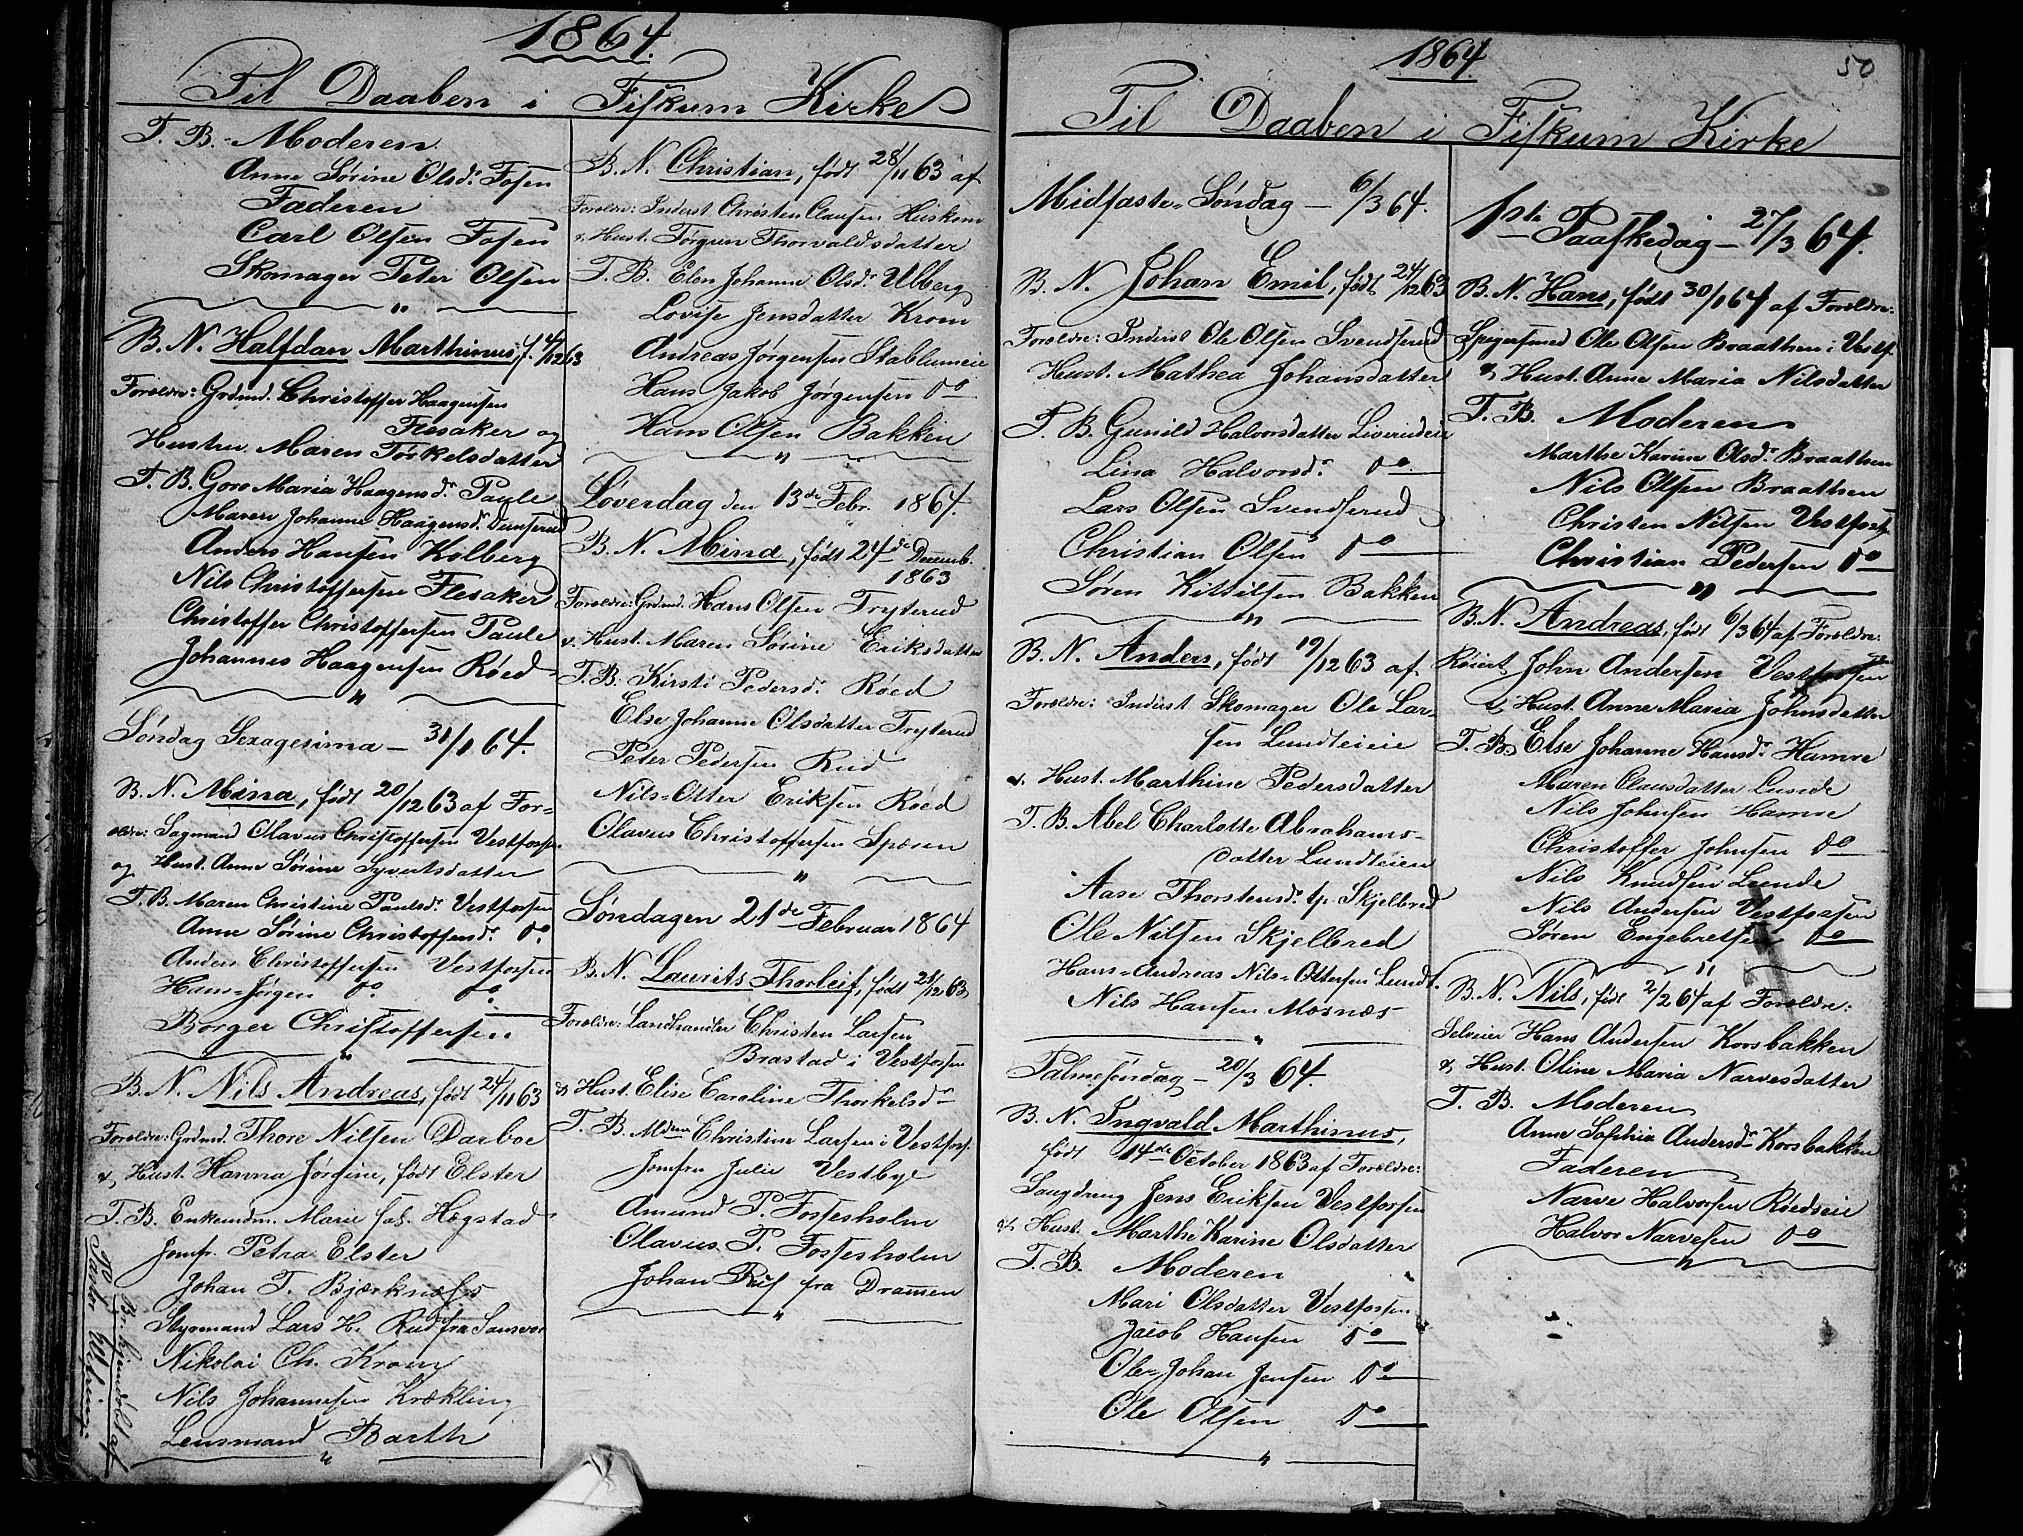 1864.
Til Daaben i Fiskum Kirke
T. B. Moderen
Anne Sørine Olsd. Fosen
Faderen
Carl Olsen Fosen
Skomager Peter Olsen
B. N. Halfdan Marthinus, f. 4/12 63
Forældre: Grdmd. Christoffer Haagensen
Flesaker og
Hustru Maren Torkelsdatter
T. B. Goro Maria Haagensd. Paule
Maren Johanne Haagensd. Dunserud
Anders Hansen Kolberg
Nils Christoffersen Flesaker
Christoffer Christoffersen Paule
Johannes Haagensen Røed
Søndag Sexagesima – 31/1 64.
B. N. Mina, født 20/12 63 af For-
ældre: Sagmand Olavus Christoffersen Vestfossen
og Hust. Anne Sørine Syvertsdatter
T. B. Maren Christine Paulsd. Vestfossen
Anne Sørine Christoffersd. Do.
Anders Christoffersen Vestfossen
Hans-Jørgen Do. Do.
Borger Christoffersen
B. N. Nils Andreas, født 24/11 63
Forældre: Grdmd. Thore Nilsen Darboe
& Hust. Hanna Jørgine, født Elster
T. B. Enkemdm. Marie Hægstad
Jomfr. Petra Elster
Johan T. Bjærknæs
Styrmand Lars H. Rud fra
Nikolai Ch. Krom
Nils Johannesen Krækling
Lensmand Barth
B. hjemdøbt af
Pastor
B. N. Christian, født 28/11 63 af
Forældre: Inderst Christen Clausen Huskom
& Hust. Jørgun Thorvaldsdatter
T. B. Elen Johanne Olsd. Ulberg
Lovise Jensdatter Krom
Andreas Jørgensen Stablumeie
Hans Jakob Jørgensen Do
Hans Olsen Bakken
Løverdag den 13de Febr. 1864.
B. N. Mina, født 24de Decemb.
1863
Forældre: Grdmd. Hans Olsen Tryterud
& Hust. Maren Sørine Eriksdatter
T. B. Kirsti Pedersd. Røed
Else Johanne Olsdatter Tryterud
Peter Pedersen Rud
Nils-Otter Eriksen Røed
Olavus Christoffersen Spæren
Søndagen 21de Februar 1864
B. N. Laurits Thorleif, født 28/12 63
Forældre: Landhandler Christen Larsen
Brastad i Vestfossen
& Hust. Elise Caroline Thorkelsd.
T. B. Mdme Christine Larsen i Vestfoss.
Jomfru Julie Vestbye
Amund P. Fossesholm
Olavus P. Fossesholm
Johan Ruf fra Drammen
1864
50
Til Daaben i Fiskum Kirke
Midfaste-Søndag – 6/3 64.
B. N. Johan Emil, født 24/12 63
Forældre: Inderst Ole Olsen Svendserud
Hust. Mathea Johansdatter
T. B. Gunild Halvorsdatter Liverudeie
Lina Halvorsd. Do
Lars Olsen Svendserud
Christian Olsen Do
Søren Kittilsen Bakken
B. N. Anders, født 19/12 63 af
Forældre: Inderst Skomager Ole Lar-
sen Lundteieie
& Hust. Marthine Pedersdatter
T. B. Abel Charlotte Abrahams-
datter Lundteien
Aase Thorstensd. Skjelbred
Ole Nilsen Skjelbred
Hans-Andreas Nils-Ottersen Lundt.
Nils Hansen Mosnæs
Palmesøndag – 20/3 64.
B. N. Ingvald Marthinus,
født 14de October 1863 af Forældre:
Laugdreng Jens Eriksen Vestfossen
& Hust. Marthe Karine Olsdatter
T. B. Moderen
Mari Olsdatter Vestfossen
Jacob Hansen Do
Ole-Johan Jensen Do
Ole Olsen Do
1ste Paaskedag – 27/3 64.
B. N. Hans, født 30/1 64 af Forældre:
Spigersmed Ole Olsen Braathen i Vestf.
& Hust. Anne Maria Nilsdatter
T. B. Moderen
Marthe Karine Olsd. Braathen
Nils Olsen Braathen
Christen Nilsen Vestfoss
Christian Pedersen Do
B. N. Andreas, født 6/3 64 af Forældre:
Røiert John Andersen Vestfossen
& Hust. Anne Maria Johnsdatter
T. B. Else Johanne Hansd. Hamre
Maren Clausdatter Lunde
Nils Johnsen Hamre
Christoffer Johnsen Do
Nils Knudsen Lunde
Nils Andersen Vestfossen
Søren Engebretsen Do
B. N. Nils, født 2/2 64 af Forældre:
Selveier Hans Andersen Korsbakken
& Hust. Oline Maria Narvesdatter
T. B. Moderen
Anne Sophia Andersd. Korsbakken
Faderen
Narve Halvorsen Røedseie
Halvor Narvesen Do